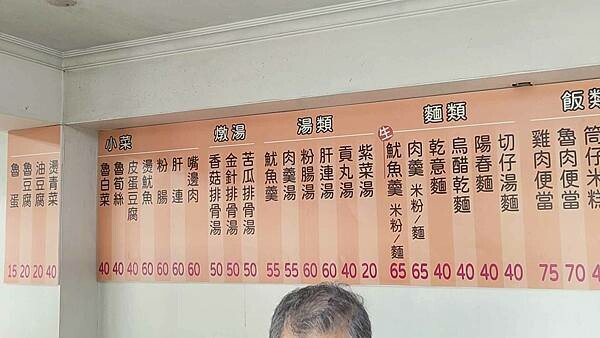 魯蛋 15
魯豆腐 20
油豆腐 20
燙青菜 40
小菜
魯白菜 40
魯筍絲 40
皮蛋豆腐 40
燙魷魚 60
粉腸 60
肝連 60
嘴邊肉 60
燉湯
香菇排骨湯 50
金針排骨湯 50
苦瓜排骨湯 50
湯類
魷魚羹 55
肉羹湯 55
粉腸湯 60
肝連湯 60
貢丸湯 40
紫菜湯 20
麵類
生魷魚羹 米粉/麵 65
肉羹 米粉/麵 65
乾意麵 40
烏醋乾麵 40
陽春麵 40
切仔湯麵 40
飯類
雞肉便當 75
魯肉便當 70
筒仔米糕